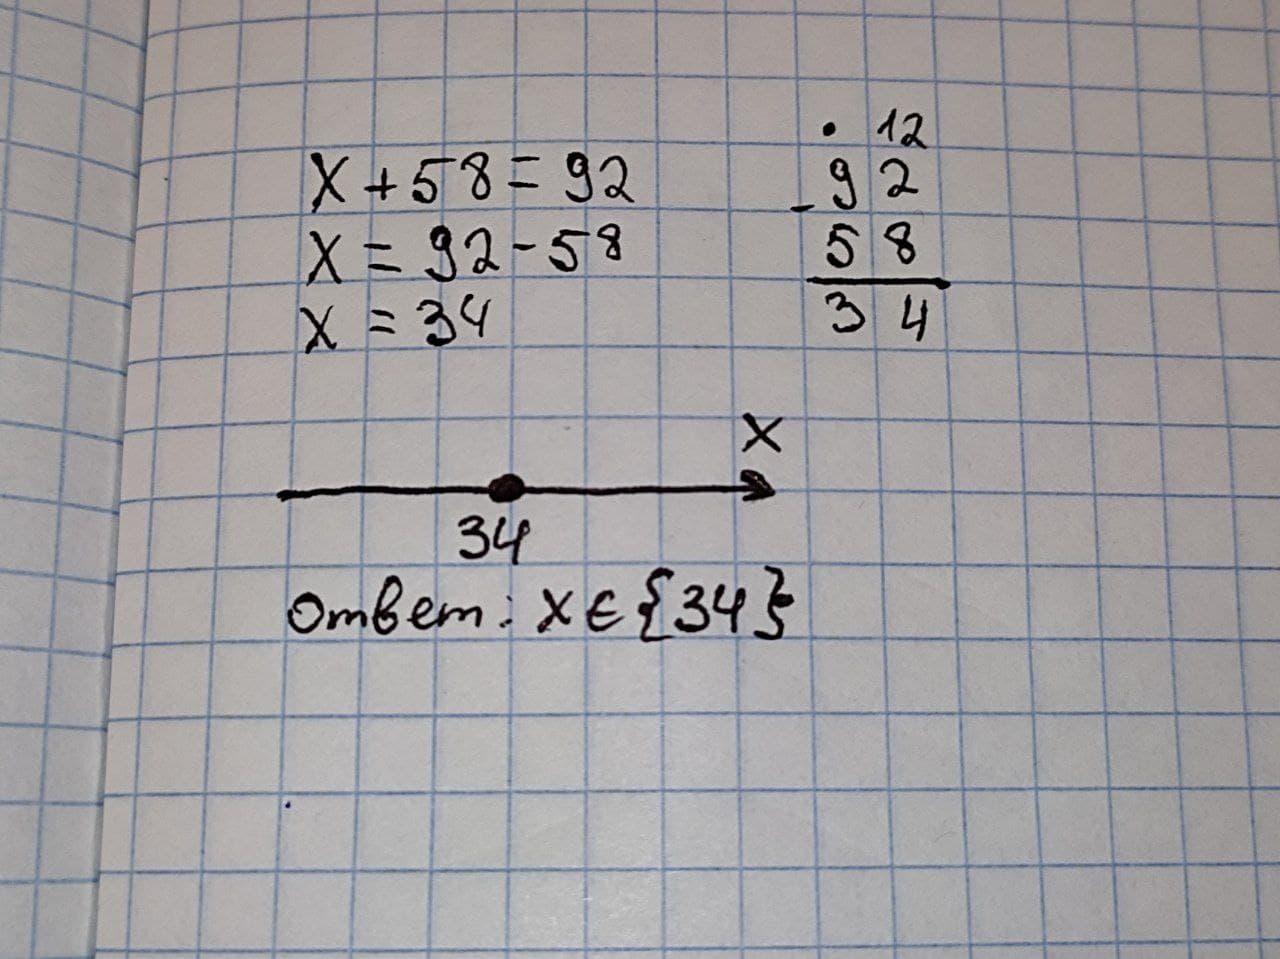 x + 58 = 92
x = 92 - 58
x = 34
• 12
- 92
58
34
x
34
Ответ: x ∈ {34}